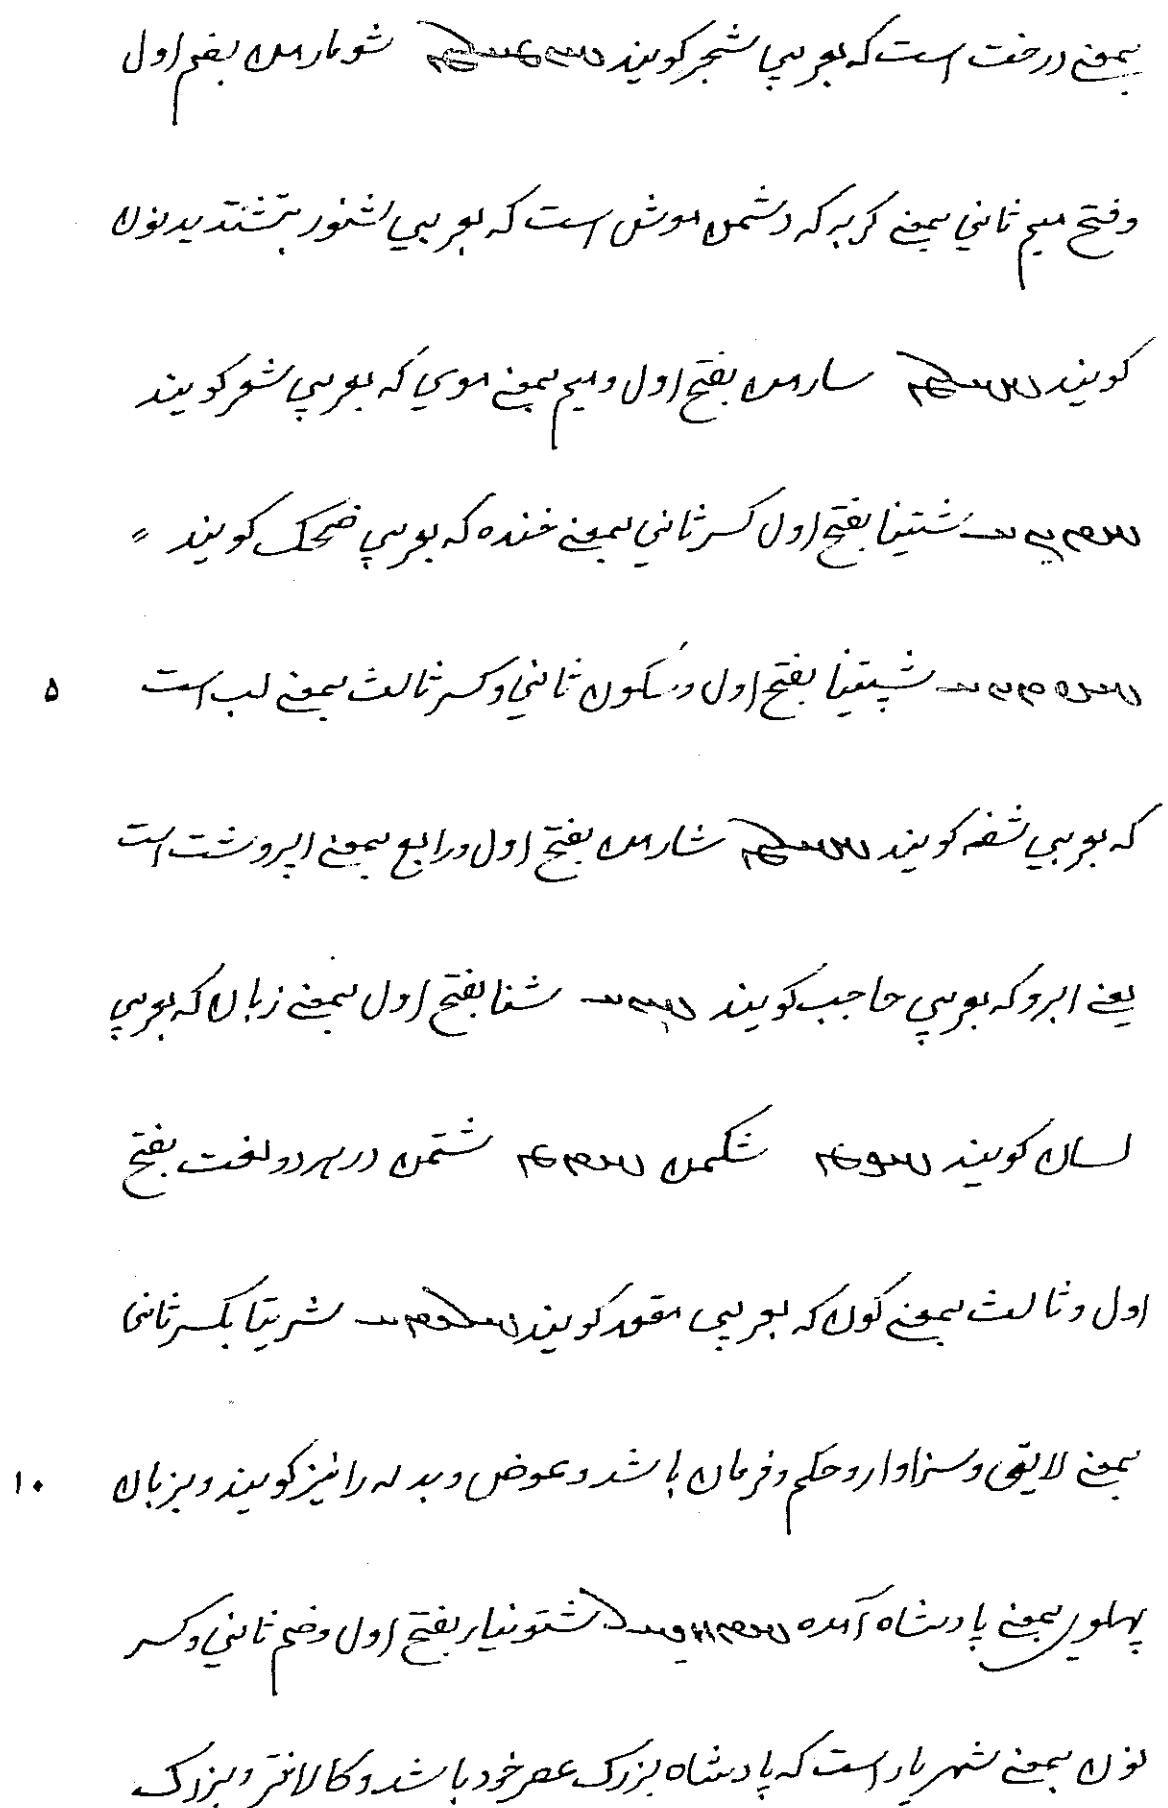 بمعنے درخت است كه بعربي شجر كويند شومارمن بضم اول
وفتح ميم ثاني بمعنے كربه كه دشمن موش است كه بعربي لشنور بتشتديد نون
كويند سارمن بفتح اول وميم بمعنے موي كه بعربي شعر كويند
شتينا بفتح اول كسر ثاني بمعنے خنده كه بعربي ضحك كويند
شپتينا بفتح اول وسكون ثاني وكسر ثالث بمعنے لب است ۵
كه بعربي شفه كويند شارمن بفتح اول ورابع بمعنے اپروشت است
يعنے ابرو كه بعربي حاجب كويند شنا بفتح اول بمعنے زبان كه بعربي
لسان كويند شكمن شتمن در هر دو لغت بفتح
اول وثالث بمعنے كون كه بعربي مقعد كويند شريتا بكسر ثاني
بمعنے لايق وسزاوار وحكم وفرمان باشد وعوض وبدله را نيز كويند وبزبان ۱۰
پهلوي بمعنے پادشاه آمده شتونيار بفتح اول وضم ثاني وكسر
نون بمعنے شهريار است كه پادشاه بزرك عصر خود باشد وكالانتر وبزرك